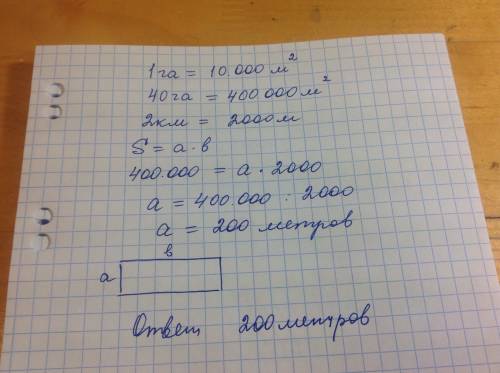 1га = 10.000 м²
40га = 400 000 м²
2км = 2000м
S = а · в
400.000 = а · 2000
а = 400.000 : 2000
а = 200 метров
в
а
Ответ 200 метров